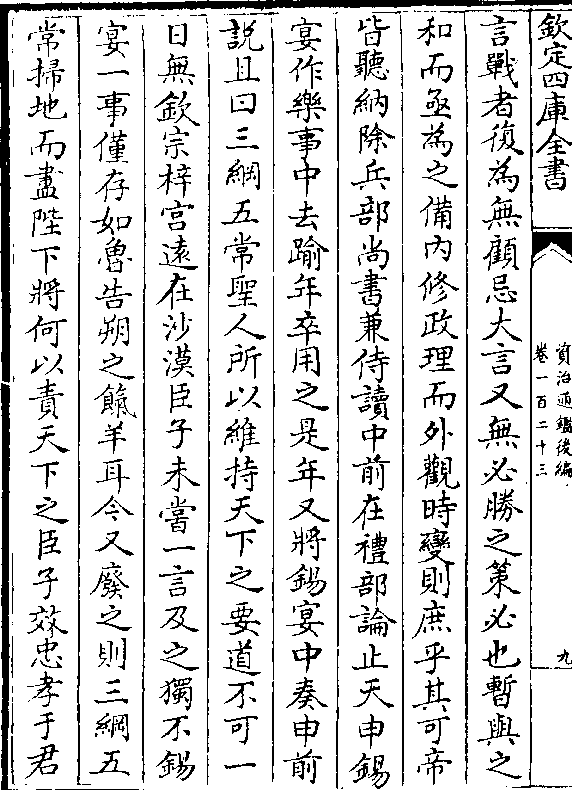 欽定四庫全書
資治通鑑後編
卷一百二十三
九
言戰者復為無顧忌大言又無必勝之策必也暫與之
和而亟為之備内修政理而外觀時變則庶乎其可帝
皆聽納除兵部尚書兼侍讀中前在禮部論止天申錫
宴作樂事中去踰年卒用之是年又將錫宴中奏申前
說且曰三綱五常聖人所以維持天下之要道不可一
日無欽宗梓宫遠在沙漠臣子未嘗一言及之獨不錫
宴一事僅存如魯告朔之餼羊耳今又廢之則三綱五
常掃地而盡陛下將何以責天下之臣子效忠孝于君